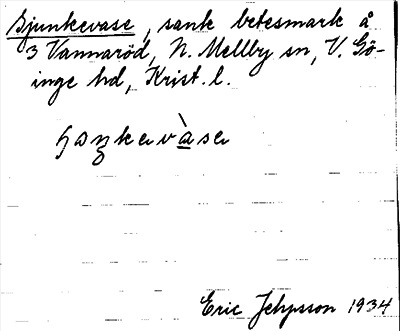 Gjunkevase, sank betesmark å
3 Vannaröd, N. Mellby sn, V. Gö-
inge hd, Krist. l.
Eric Jepsson 1934